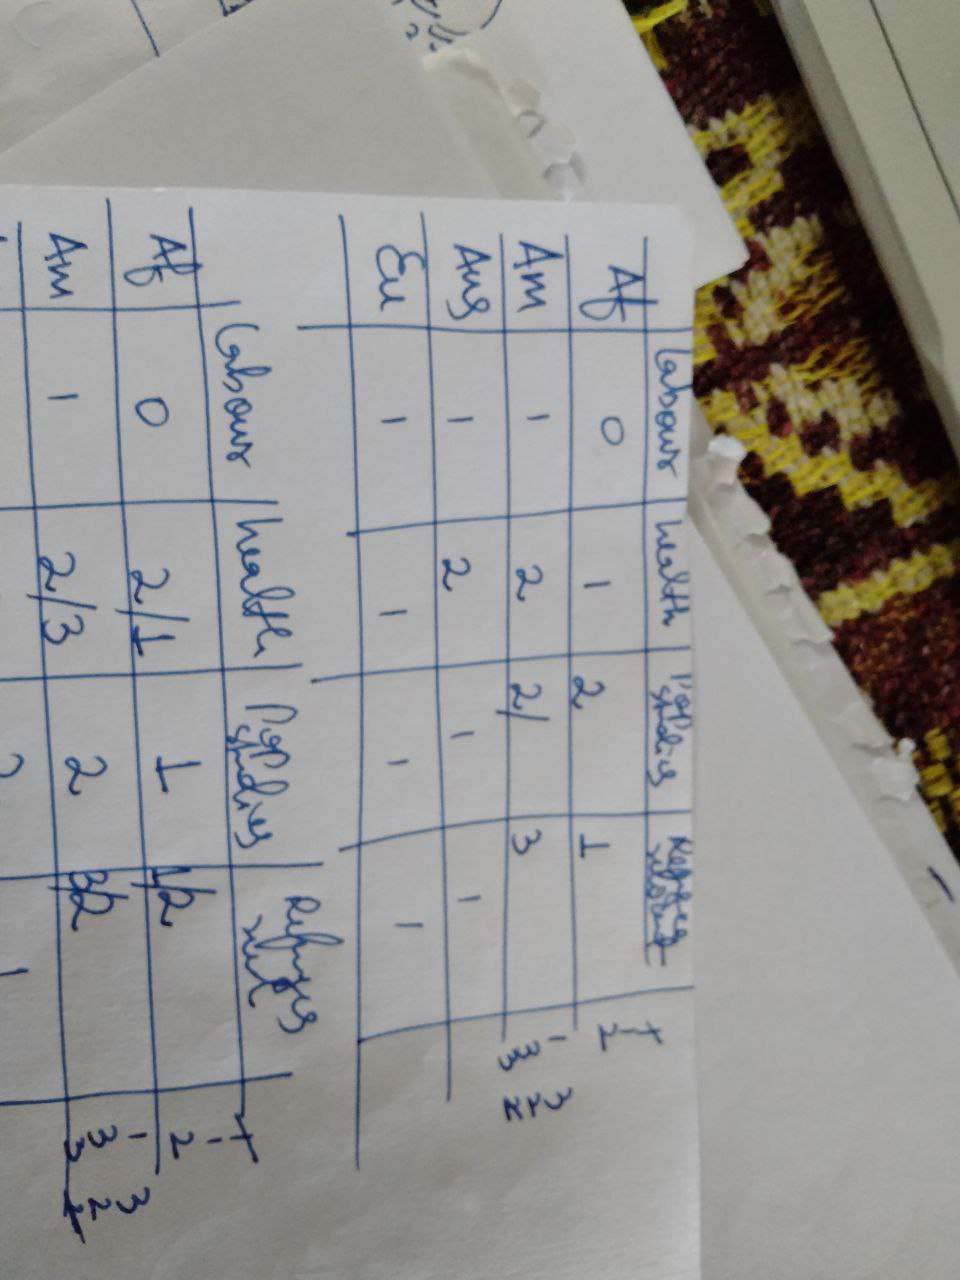 Labour health Pop studies Refugee
Af 0 1 2 1
Am 1 2 2/ 3
Aus 1 2 1 1
Eu 1 1 1 1
1 3
2 3 2
Labour health Pop studies Refugees
Af 0 2/1 1 1/2
Am 1 2/3 2 3/2
1 3
2 3 2